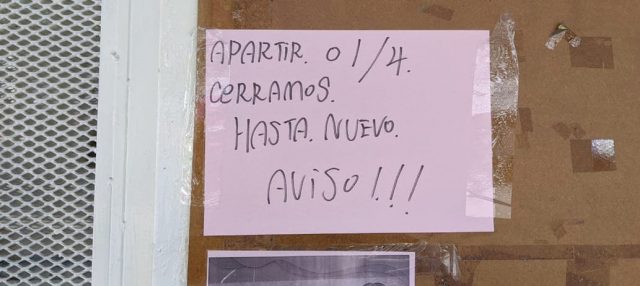 APARTIR. 01/4.
CERRAMOS.
HASTA. NUEVO.
AViSO!!!